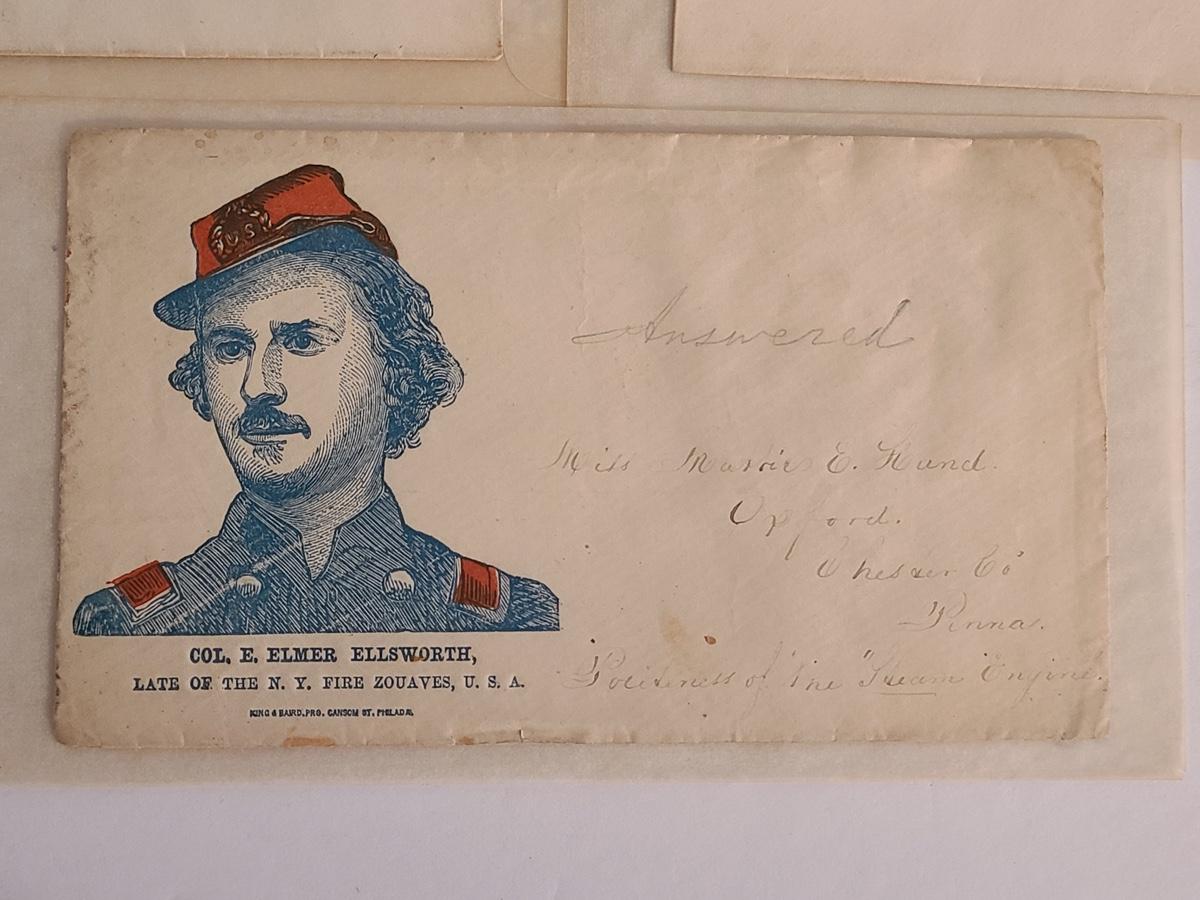 U S
Answered
Miss E. Hand.
Oxford.
Chester Co
Penna.
Politeness of the "Steam Engine.
COL. E. ELMER ELLSWORTH,
LATE OF THE N. Y. FIRE ZOUAVES, U. S. A.
KING & BAIRD, PRS. SANSOM ST. PHILADA.